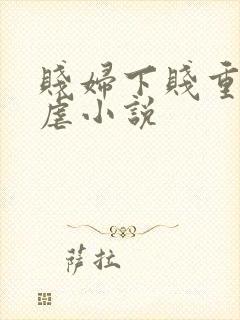 賤婦下賤重
虐小說
萨拉